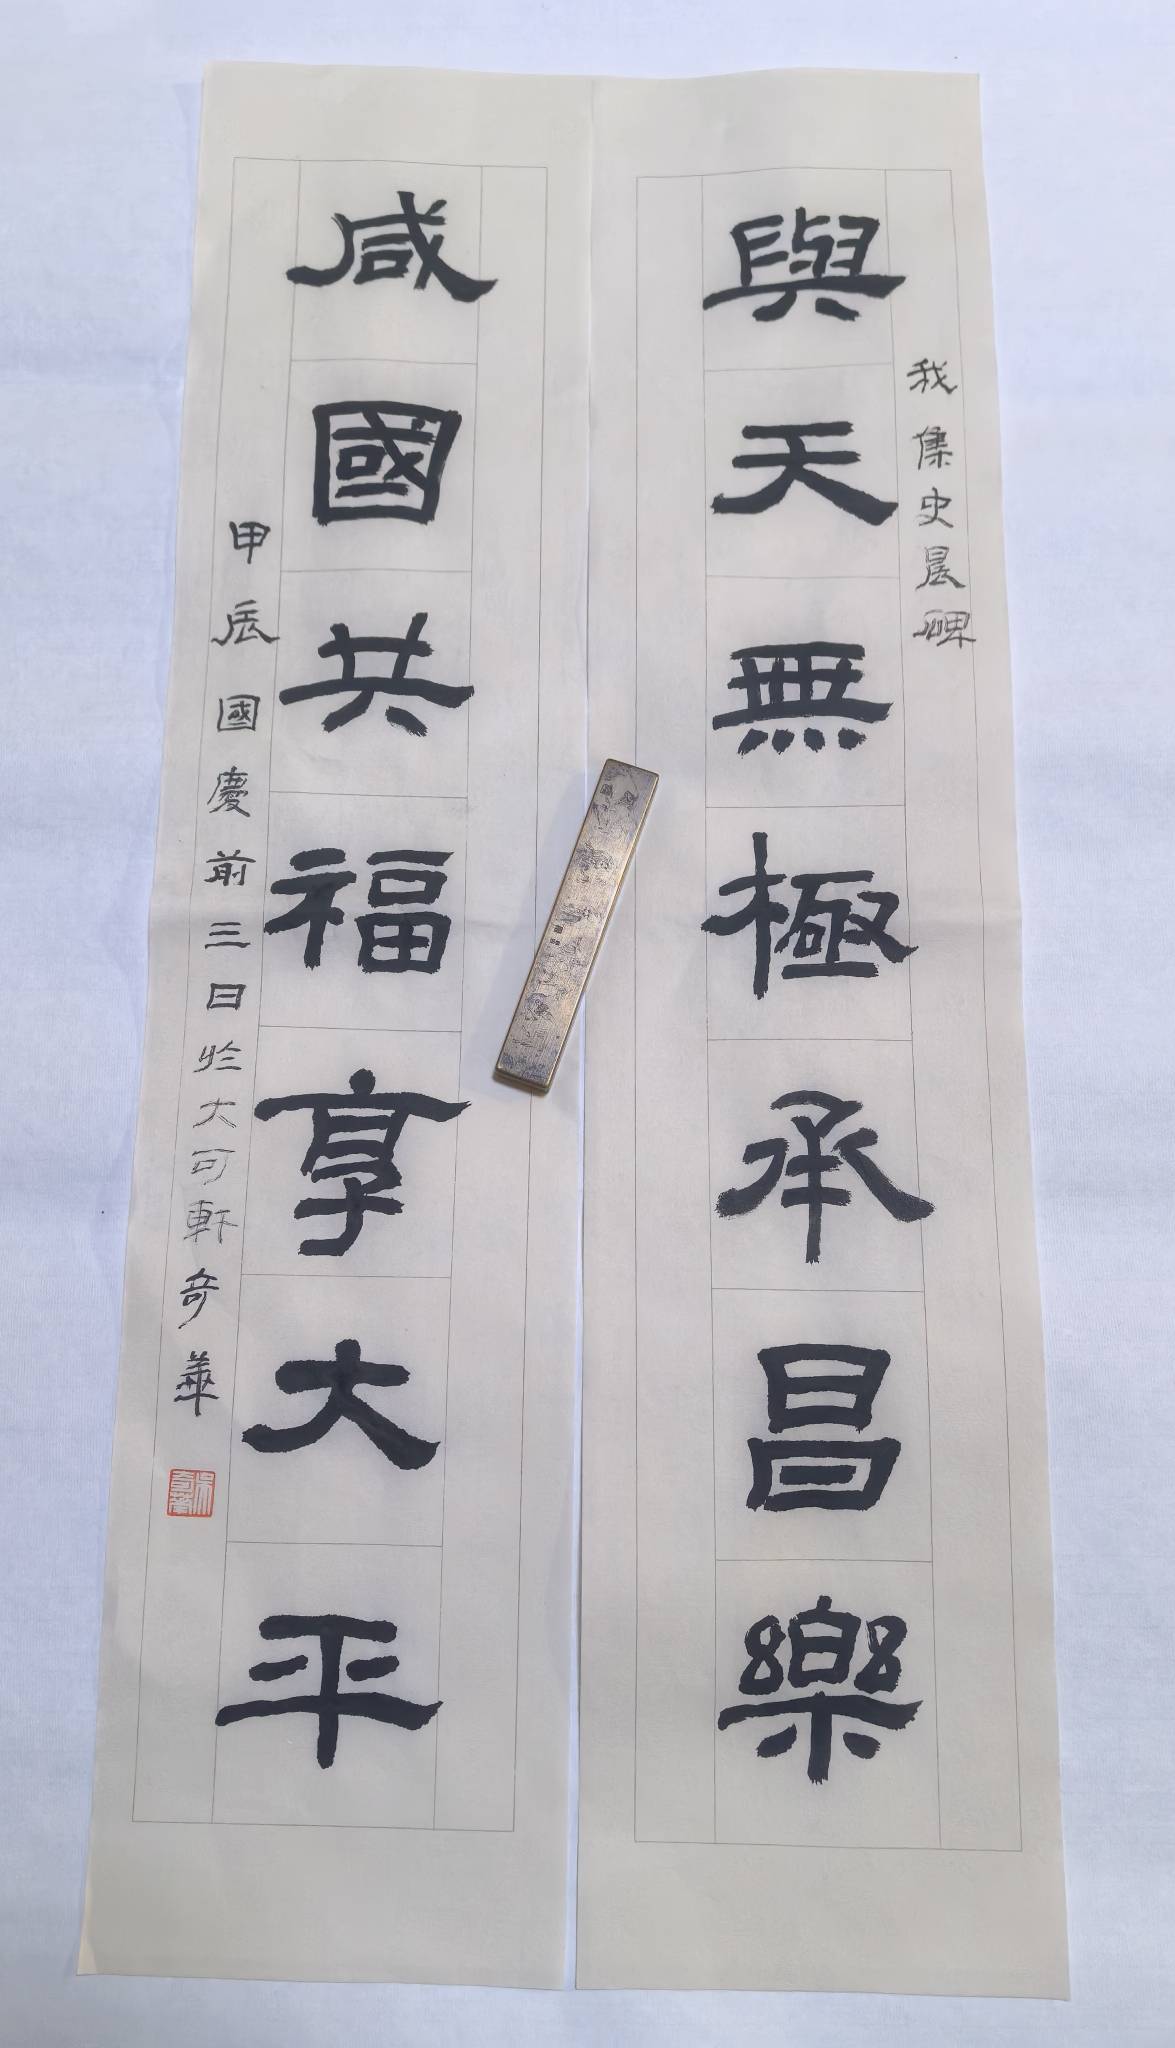 我集史晨碑
與天無極承昌樂
咸國共福享大平
甲辰國慶前三日於大可軒奇華